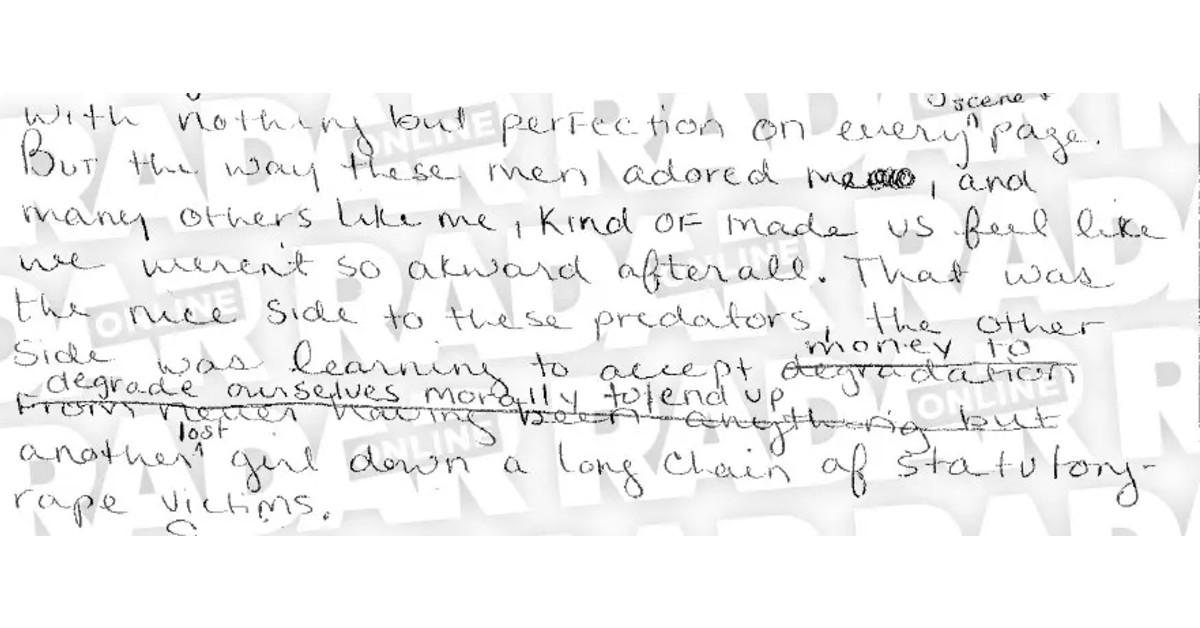 scene +
with nothing but perfection on every ^ page.
But the way these men adored me, and
many others like me, kind of made us feel like
we weren't so akward afterall. That was
the nice side to these predators, the other
money to
side was learning to accept degradation
degrade ourselves morally to end up
from never having been anything but
lost
another ^ girl down a long chain of statutory-
rape victims.
RADAR ONLINE